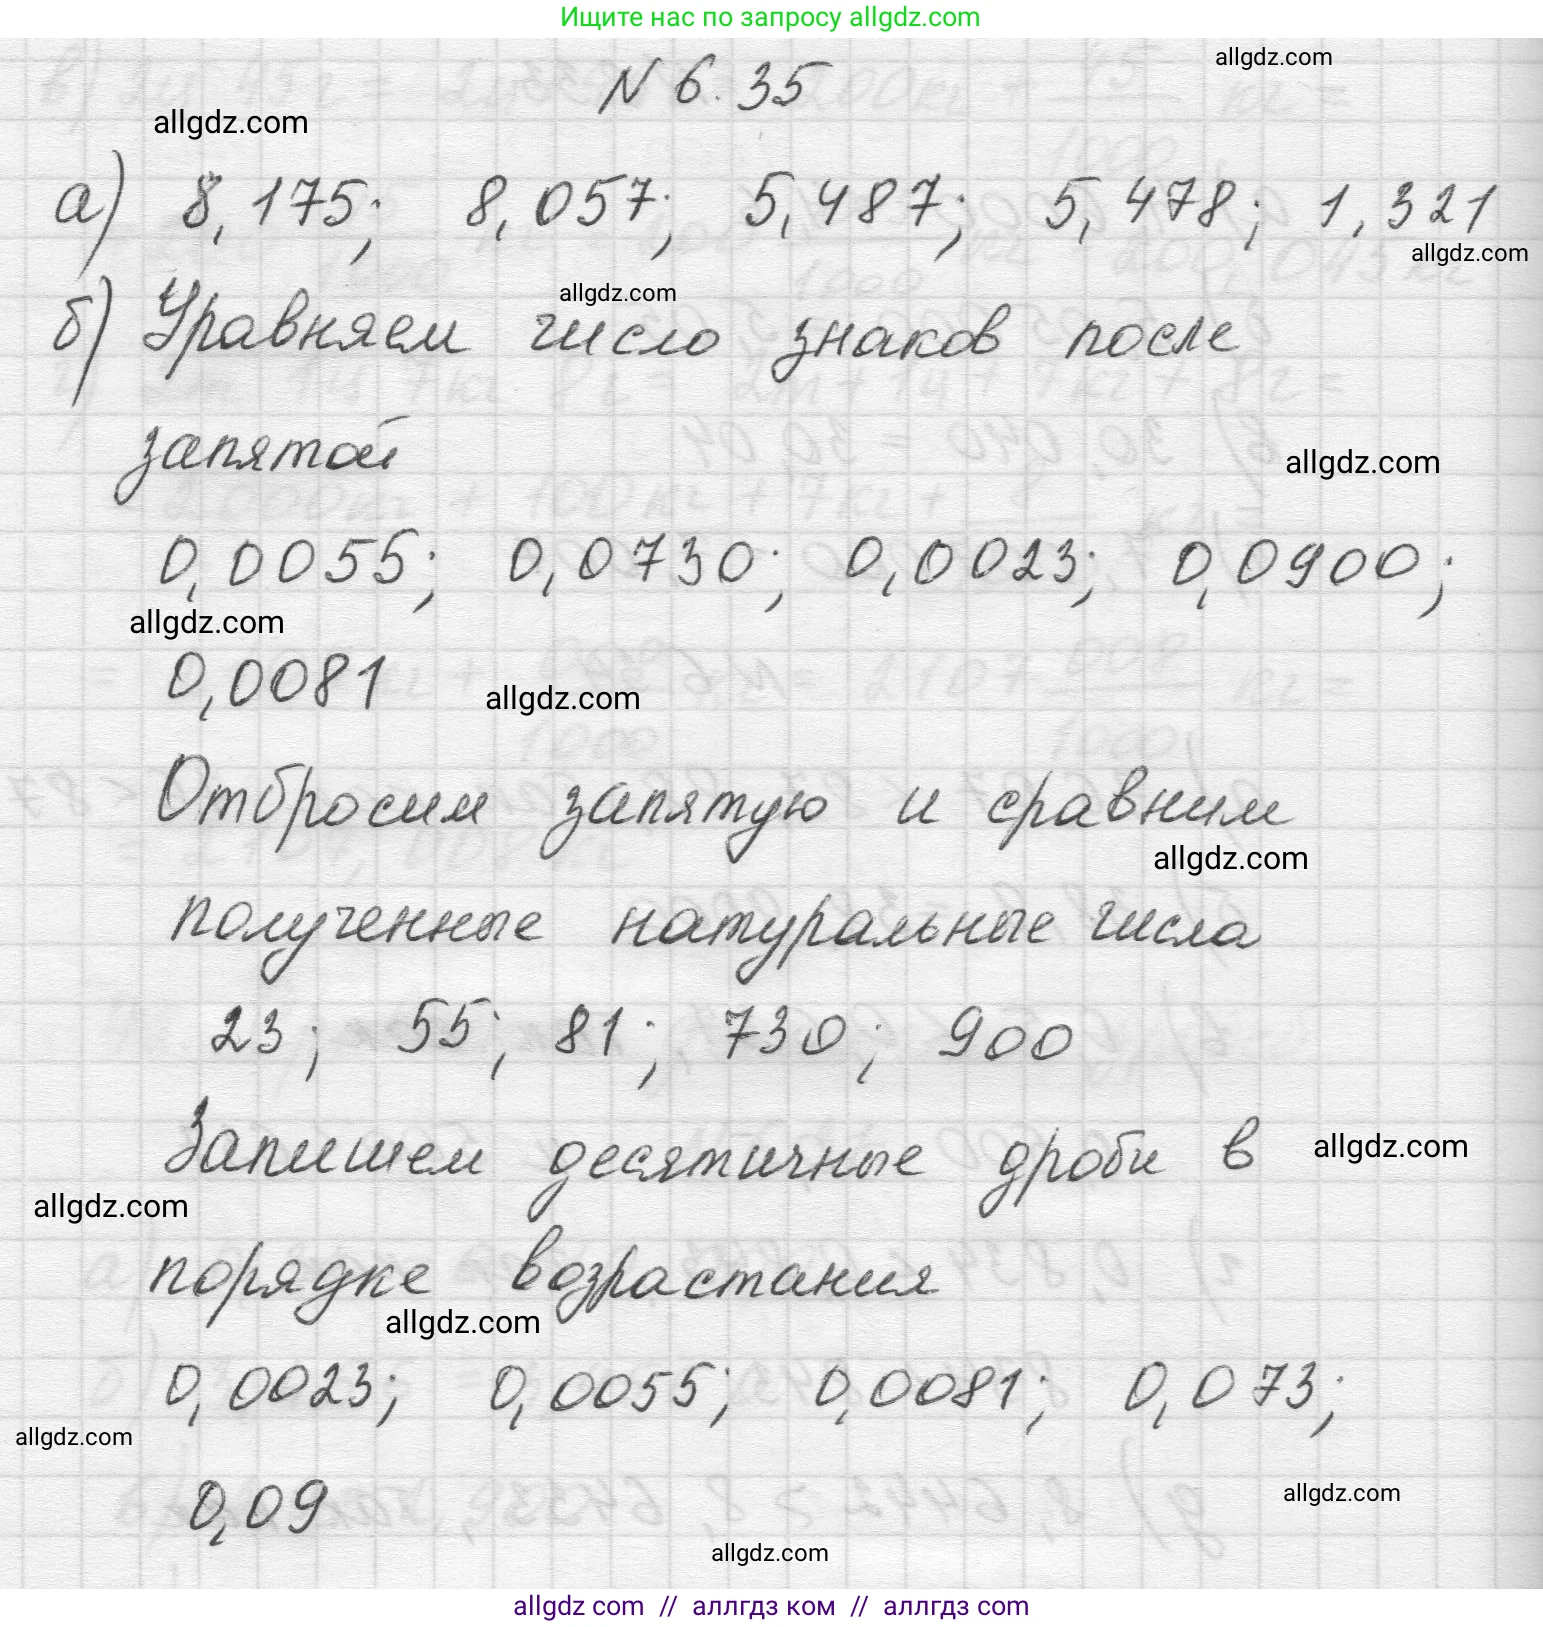 Ищите нас по запросу allgdz.com
allgdz.com
N 6.35
allgdz.com
а) 8,175; 8,057; 5,487; 5,478; 1,321
allgdz.com
allgdz.com
б) Уравняем число знаков после
запятой
allgdz.com
0,0055; 0,0730; 0,0023; 0,0900;
allgdz.com
0,0081
allgdz.com
Отбросим запятую и сравним
allgdz.com
полученные натуральные числа
23; 55; 81; 730; 900
Запишем десятичные дроби в
allgdz.com
allgdz.com
порядке возрастания
allgdz.com
0,0023; 0,0055; 0,0081; 0,073;
allgdz.com
0,09
allgdz.com
allgdz.com
allgdz com // аллгдз ком // аллгдз com